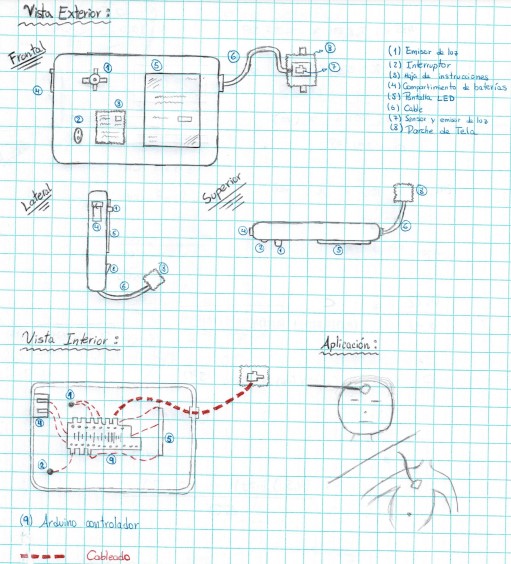 Vista Exterior:
Frontal
(1) Emisor de luz
(2) Interruptor
(3) Hoja de instrucciones
(4) Compartimiento de baterías
(5) Pantalla LED
(6) Cable
(7) Sensor y emisor de luz
(8) Parche de Tela
1
5
6
8
7
4
2
3
Lateral
Superior
1
4
5
6
8
4
3
1
5
6
8
Vista Interior:
Aplicación:
4
1
5
2
9
(9) Arduino controlador
Cableado